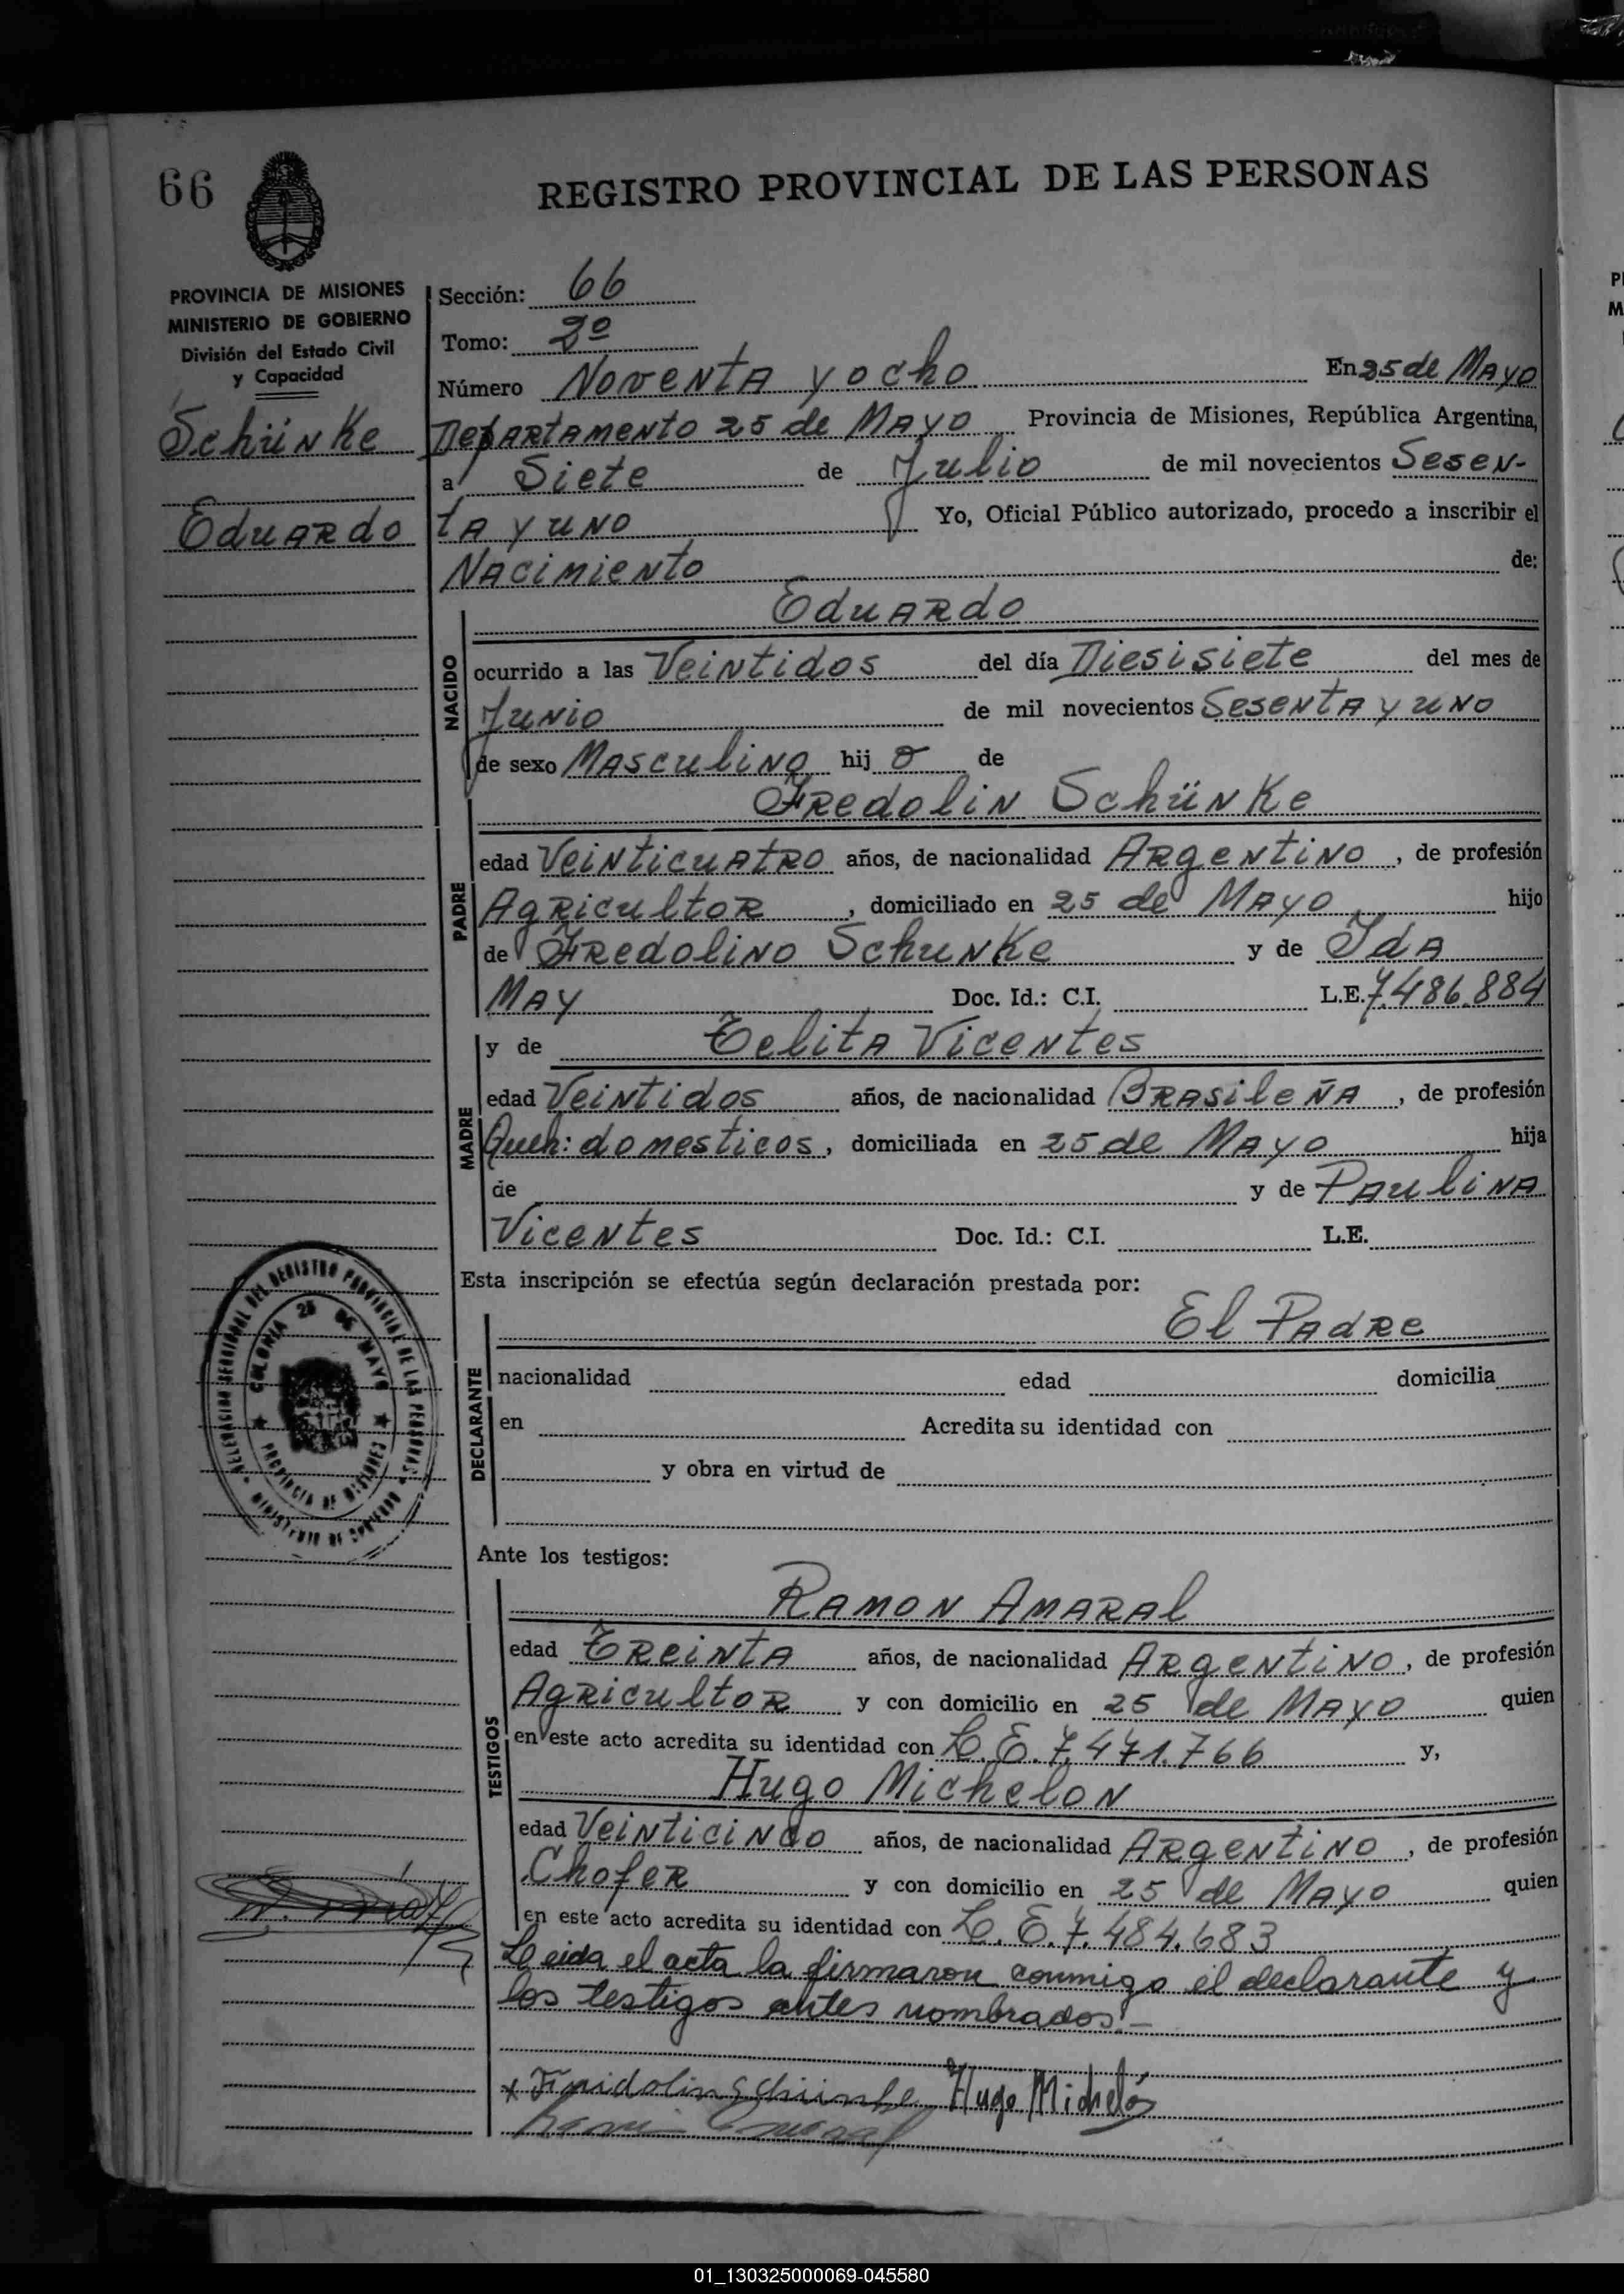 66
REGISTRO PROVINCIAL DE LAS PERSONAS
PROVINCIA DE MISIONES
MINISTERIO DE GOBIERNO
División del Estado Civil
y Capacidad
Schünke
Eduardo
Sección: 66
Tomo: 2º
Número Noventa y ocho En 25 de Mayo
Departamento 25 de Mayo Provincia de Misiones, República Argentina,
a Siete de Julio de mil novecientos Sesen-
ta y uno Yo, Oficial Público autorizado, procedo a inscribir el
Nacimiento de:
Eduardo
NACIDO
ocurrido a las Veintidos del día Diesisiete del mes de
Junio de mil novecientos Sesenta y uno
de sexo Masculino hij o de
Fredolin Schünke
PADRE
edad Veinticuatro años, de nacionalidad Argentino, de profesión
Agricultor, domiciliado en 25 de Mayo hijo
de Fredolino Schunke y de Ida
May Doc. Id.: C.I. L.E. 7.486.884
y de Telita Vicentes
MADRE
edad Veintidos años, de nacionalidad Brasileña, de profesión
Queh: domesticos, domiciliada en 25 de Mayo hija
de y de Paulina
Vicentes Doc. Id.: C.I. L.E.
Esta inscripción se efectúa según declaración prestada por:
El Padre
DECLARANTE
nacionalidad edad domicilia
en Acredita su identidad con
y obra en virtud de
DELEGACION SECCIONAL DEL REGISTRO PROVINCIAL DE LAS PERSONAS
MINISTERIO DE GOBIERNO
COLONIA 25 DE MAYO
PROVINCIA DE MISIONES
Ante los testigos:
Ramon Amaral
TESTIGOS
edad Treinta años, de nacionalidad Argentino, de profesión
Agricultor y con domicilio en 25 de Mayo quien
en este acto acredita su identidad con L.E. 7.471.766 y,
Hugo Michelon
edad Veinticinco años, de nacionalidad Argentino, de profesión
Chofer y con domicilio en 25 de Mayo quien
en este acto acredita su identidad con L.E. 7.484.683
Leida el acta la firmaron conmigo el declarante y
los testigos antes nombrados.-
x Fridolin Schünke Hugo Michelón
01_130325000069-045580